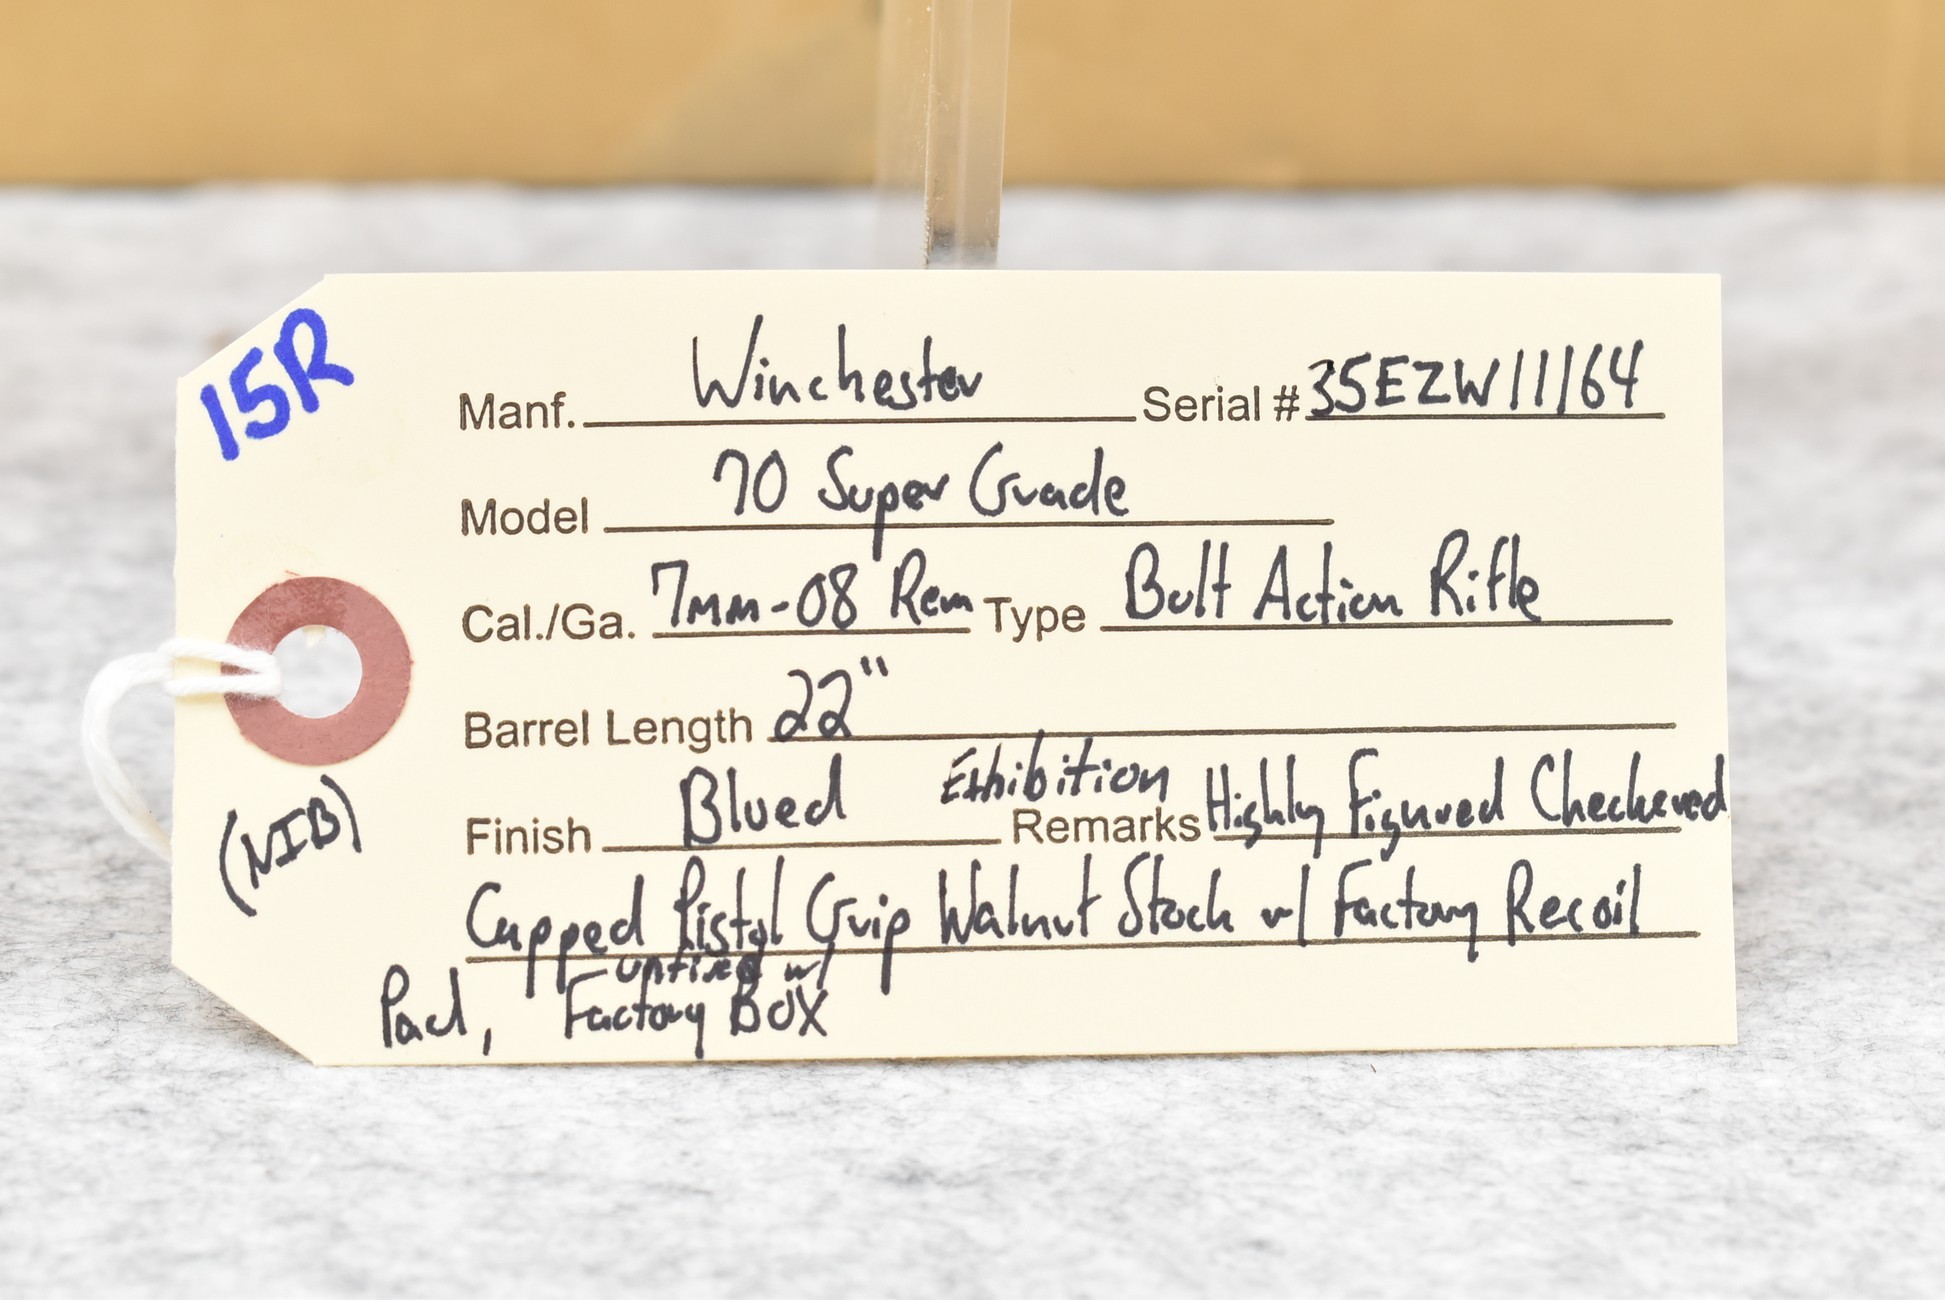 15R
Manf. Winchester Serial # 35EZW11164
Model 70 Super Grade
Cal./Ga. 7mm-08 Rem Type Bolt Action Rifle
Barrel Length 22"
Finish Blued Exhibition Remarks Highly Figured Checkered
(NIB)
Capped Pistol Grip Walnut Stock w/ Factory Recoil
Pad, unfired w/
Factory BOX